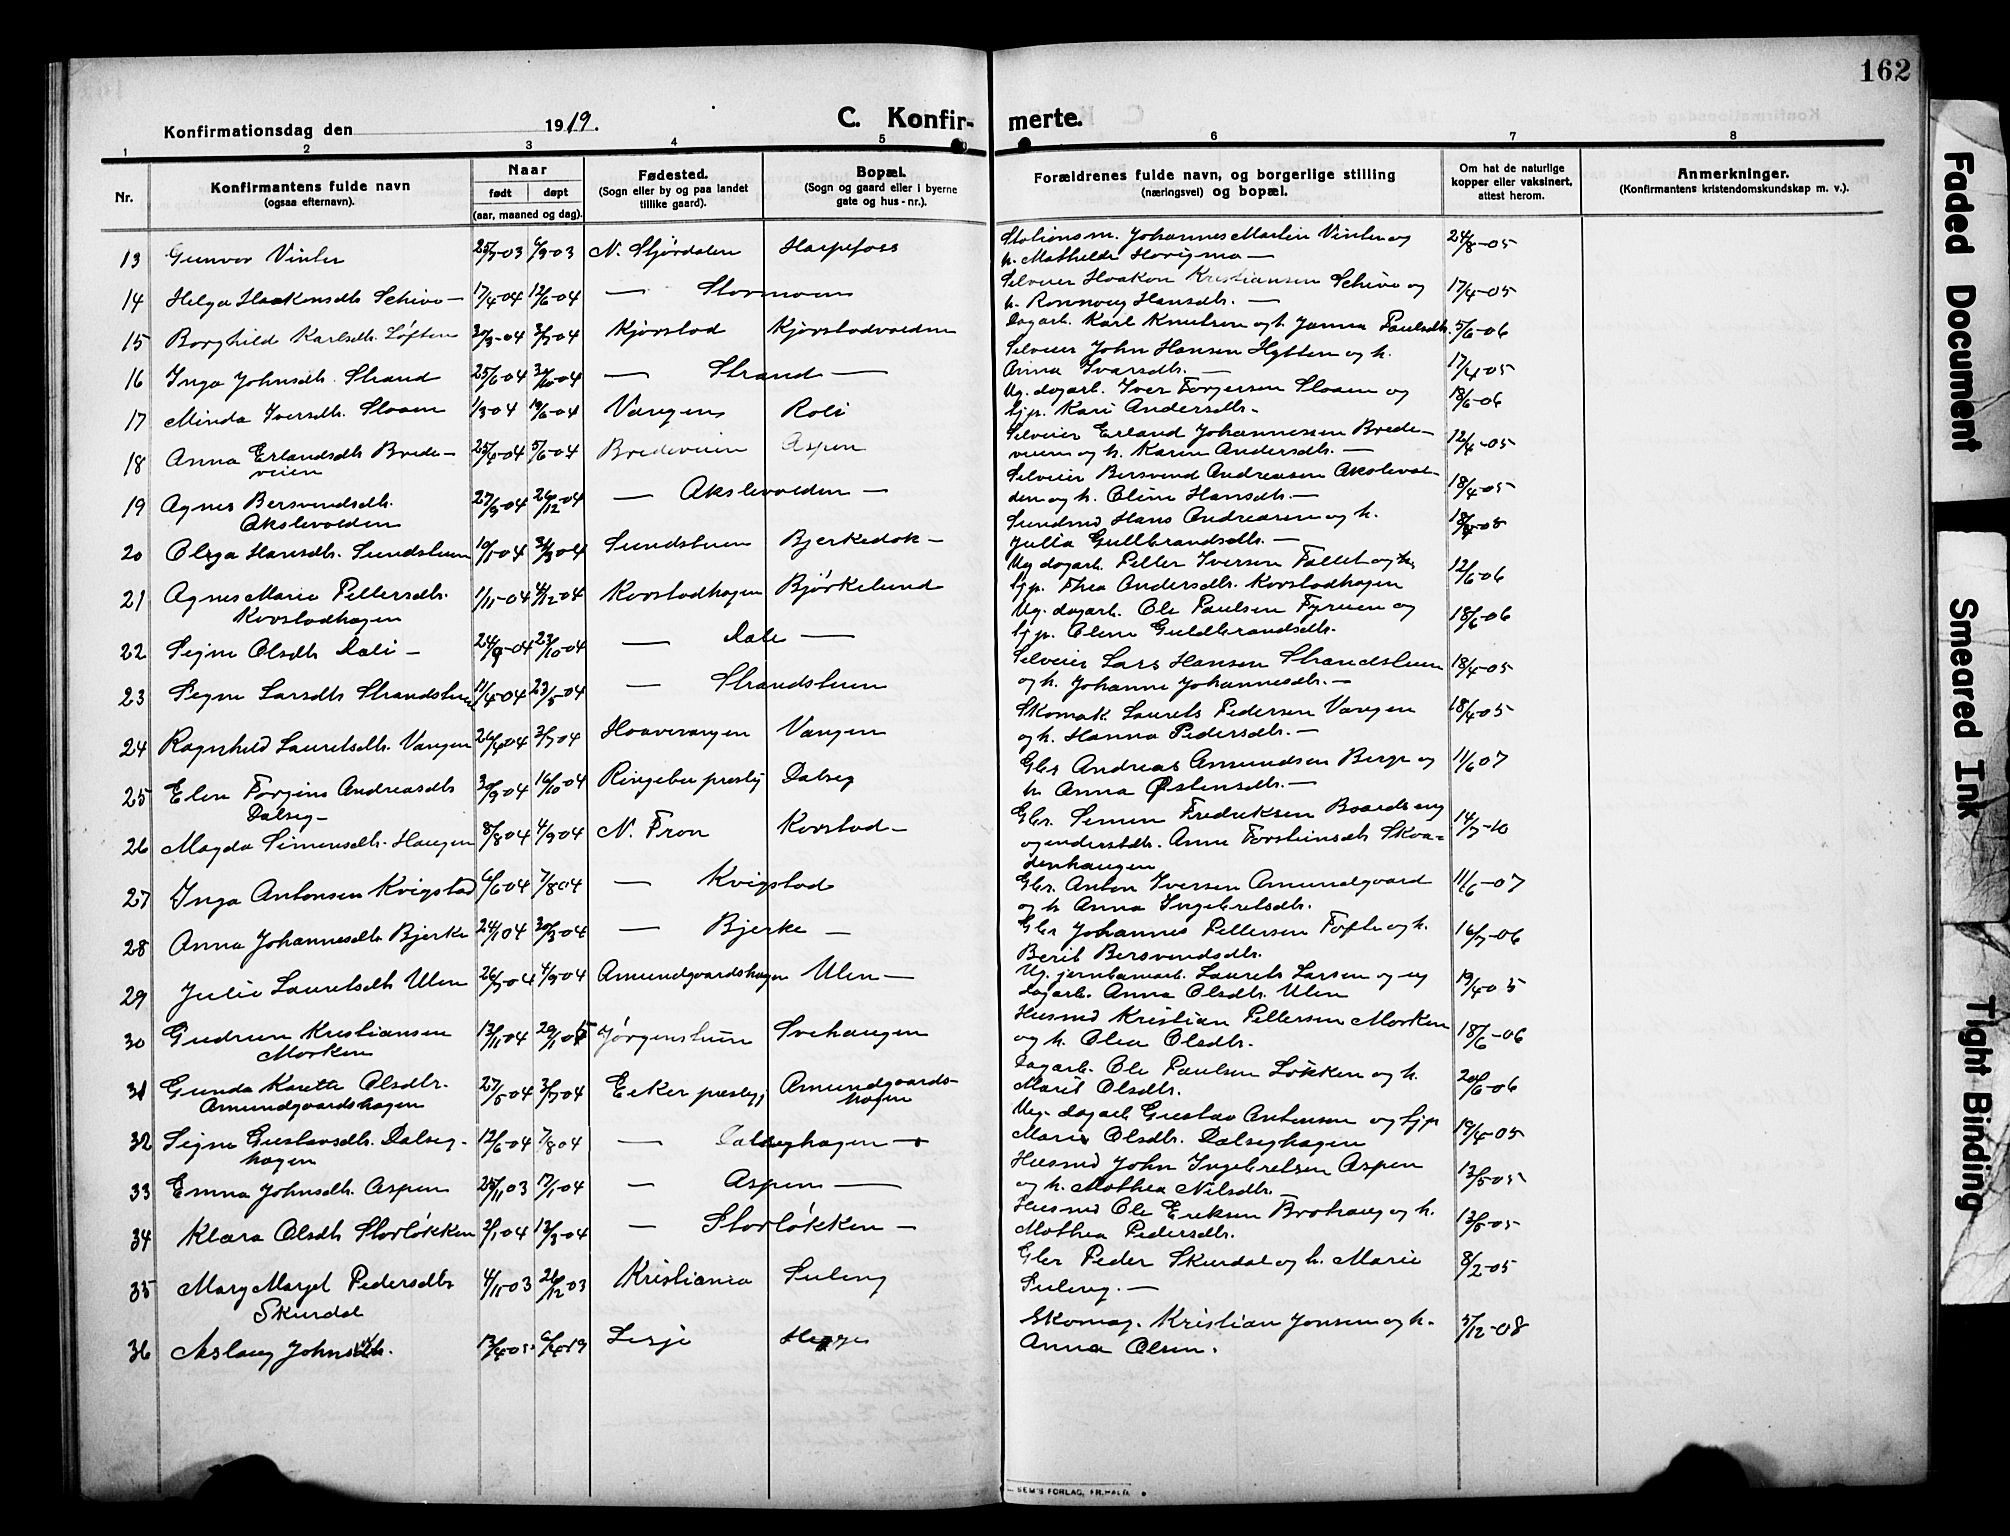 162
Konfirmationsdag den 1919.
C. Konfirmerte.
1 2 3 4 5 6 7 8
Nr.
Konfirmantens fulde navn
(ogsaa efternavn).
Naar
født døpt
(aar, maaned og dag).
Fødested.
(Sogn eller by og paa landet
tillike gaard).
Bopæl.
(Sogn og gaard eller i byerne
gate og hus-nr.).
Forældrenes fulde navn, og borgerlige stilling
(næringsvei) og bopæl.
Om hat de naturlige
kopper eller vaksinert,
attest herom.
Anmerkninger.
(Konfirmantens kristendomskundskap m. v.).
13 Gunvor Vinter 25/7-03 6/9-03 N. Stjørdalen Harpefoss Stationsm. Johannes Martin Vinter og 24/8-05
h. Mathilde Hovigma —
14 Helga Haakensdtr. Schive — 17/4-04 12/6-04 — Stormoen Selveier Haakon Kristiansen Schive og 17/4-05
h. Rønnoug Hansdtr. —
15 Borghild Karlsdtr. Løften 20/3-04 3/7-04 Kjørstad Kjørstadvolden Dagarb. Karl Knutsen og h. Janna Paulsdtr. 5/6-06
16 Inga Johnsdtr. Strand 25/6-04 3/10-04 — Strand — Selveier John Hansen Hytten og h. 17/4-05
Anna Ivarsdtr. —
17 Minda Iversdtr. Sloaen 1/3-04 19/6-04 Vangen Roli Ug. dagarb. Iver Torgersen Sloaen og 18/6-06
pp. Kari Andersdtr. -
18 Anna Erlandsdtr. Brede- 25/4-04 5/6-04 Bredeveien Aspen Selveier Erland Johannessen Brede- 12/4-05
veien
veien og h. Karin Andersdtr. —
19 Agnes Bersvendsdtr. 27/9-04 26/12-04 — Akslevolden — Selveier Bersvend Andreasen Akslevol- 18/4-05
Akslevolden
den og h. Oline Hansdtr. —
20 Olga Hansdtr. Sundstuen 19/1-04 Sundstuen Bjerkedok — Sundmd Hans Andreasen og h.
Julia Gullbrandsdtr. —
21 Agnes Marie Pettersdtr. 1/11-04 4/12-04 Korstadhagen Bjørkelund Ug. dagarb. Petter Iversen Fallet og 12/6-06
Korstadhagen
pp. Thea Andersdtr. Korstadhagen
22 Signe Olsdtr. Dali — 24/9-04 23/10-04 — Dale — Ug. dagarb. Ole Paulsen Fyruen og 18/6-06
pp. Oline Guldbrandsdtr.
23 Signe Larsdtr. Strandstuen 11/4-04 23/5-04 — Strandstuen Selveier Lars Hansen Strandstuen 18/4-05
og h. Johanne Johannesdtr. —
24 Ragnhild Lauretsdtr. Vangen 26/4-04 3/7-04 Haavevangen Vangen Skomak. Laurets Pedersen Vangen 18/4-05
og h. Hanna Pedersdtr. —
25 Elen Torgine Andreasdtr 30/9-04 16/10-04 Ringebu prestgj Dalseg Gbr Andreas Amundsen Berge og 11/6 07
Dalseg —
h. Anna Østensdtr. —
26 Magda Simensdtr. Haugen 8/8-04 4/9-04 N. Fron Korstad — Gbr. Simen Fredriksen Baardseng 14/7-10
og enderstdtr. Anne Torsteinsdtr Skoa-
denhaugen
27 Inga Antonsen Kvigstad 6/6-04 7/8 04 — Kvigstad Gbr. Anton Iversen Amundgaard 11/6-07
og h Anna Ingebretsdtr.
28 Anna Johannesdtr. Bjerke 24/1 04 20/3-04 — Bjerke — Gbr Johannes Pettersen Tofte og h. 16/7-06
Berit Bersvendsdtr.
29 Julie Lauretsdtr. Ulen 26/7 04 4/9 04 Amundgaardshagen Ulen — Ug. jernbanearb. Laurets Larsen og ug 19/4 05
dagarb. Anna Olsdtr. Ulen
30 Gudrun Kristiansen 13/11-04 29/1 05 Jørgenstuen Svehaugen Husmd Kristian Pettersen Morken 18/6-06
Morken
og h. Olea Olsdtr.
31 Gunda Karette Olsdtr. 27/5-04 3/7 04 Eeker prestgj; Amundgaards- Dagarb. Ole Paulsen Løkken og h. 20/6-06
Amundgaardshagen hagen
Marit Olsdtr.
32 Signe Gustavsdtr. Dalseg- 12/6-04 7/8 04 — Dalseghagen — Ug. dagarb Gustav Antonsen og pp 19/4-05
hagen
Marie Olsdtr. Dalseghagen
33 Emma Johnsdtr. Aspen 25/11 03 17/1-04 — Aspen — Husmd John Ingebretsen Aspen 13/5-05
og h. Mathea Nilsdtr. —
34 Klara Olsdtr Storløkken 2/1-04 13/3-04 — Storløkken — Husmd Ole Eriksen Brohaug og h. 13/5-05
Mathea Pedersdtr.
35 Mary Margit Pedersdtr 4/11-03 26/12-03 Kristiania Suleng Gbr Peder Skurdal og h. Marie 8/2-05
Skurdal
Suleng. —
36 Aslaug Johnsdtr. 13/4-05 6/4-19 Lesje Hegge Skomag. Kristian Jonsen og h. 5/12-08
Anna Olsen.
SEM'S FORLAG, FR.HALD.
Faded Document
Smeared Ink
Tight Binding